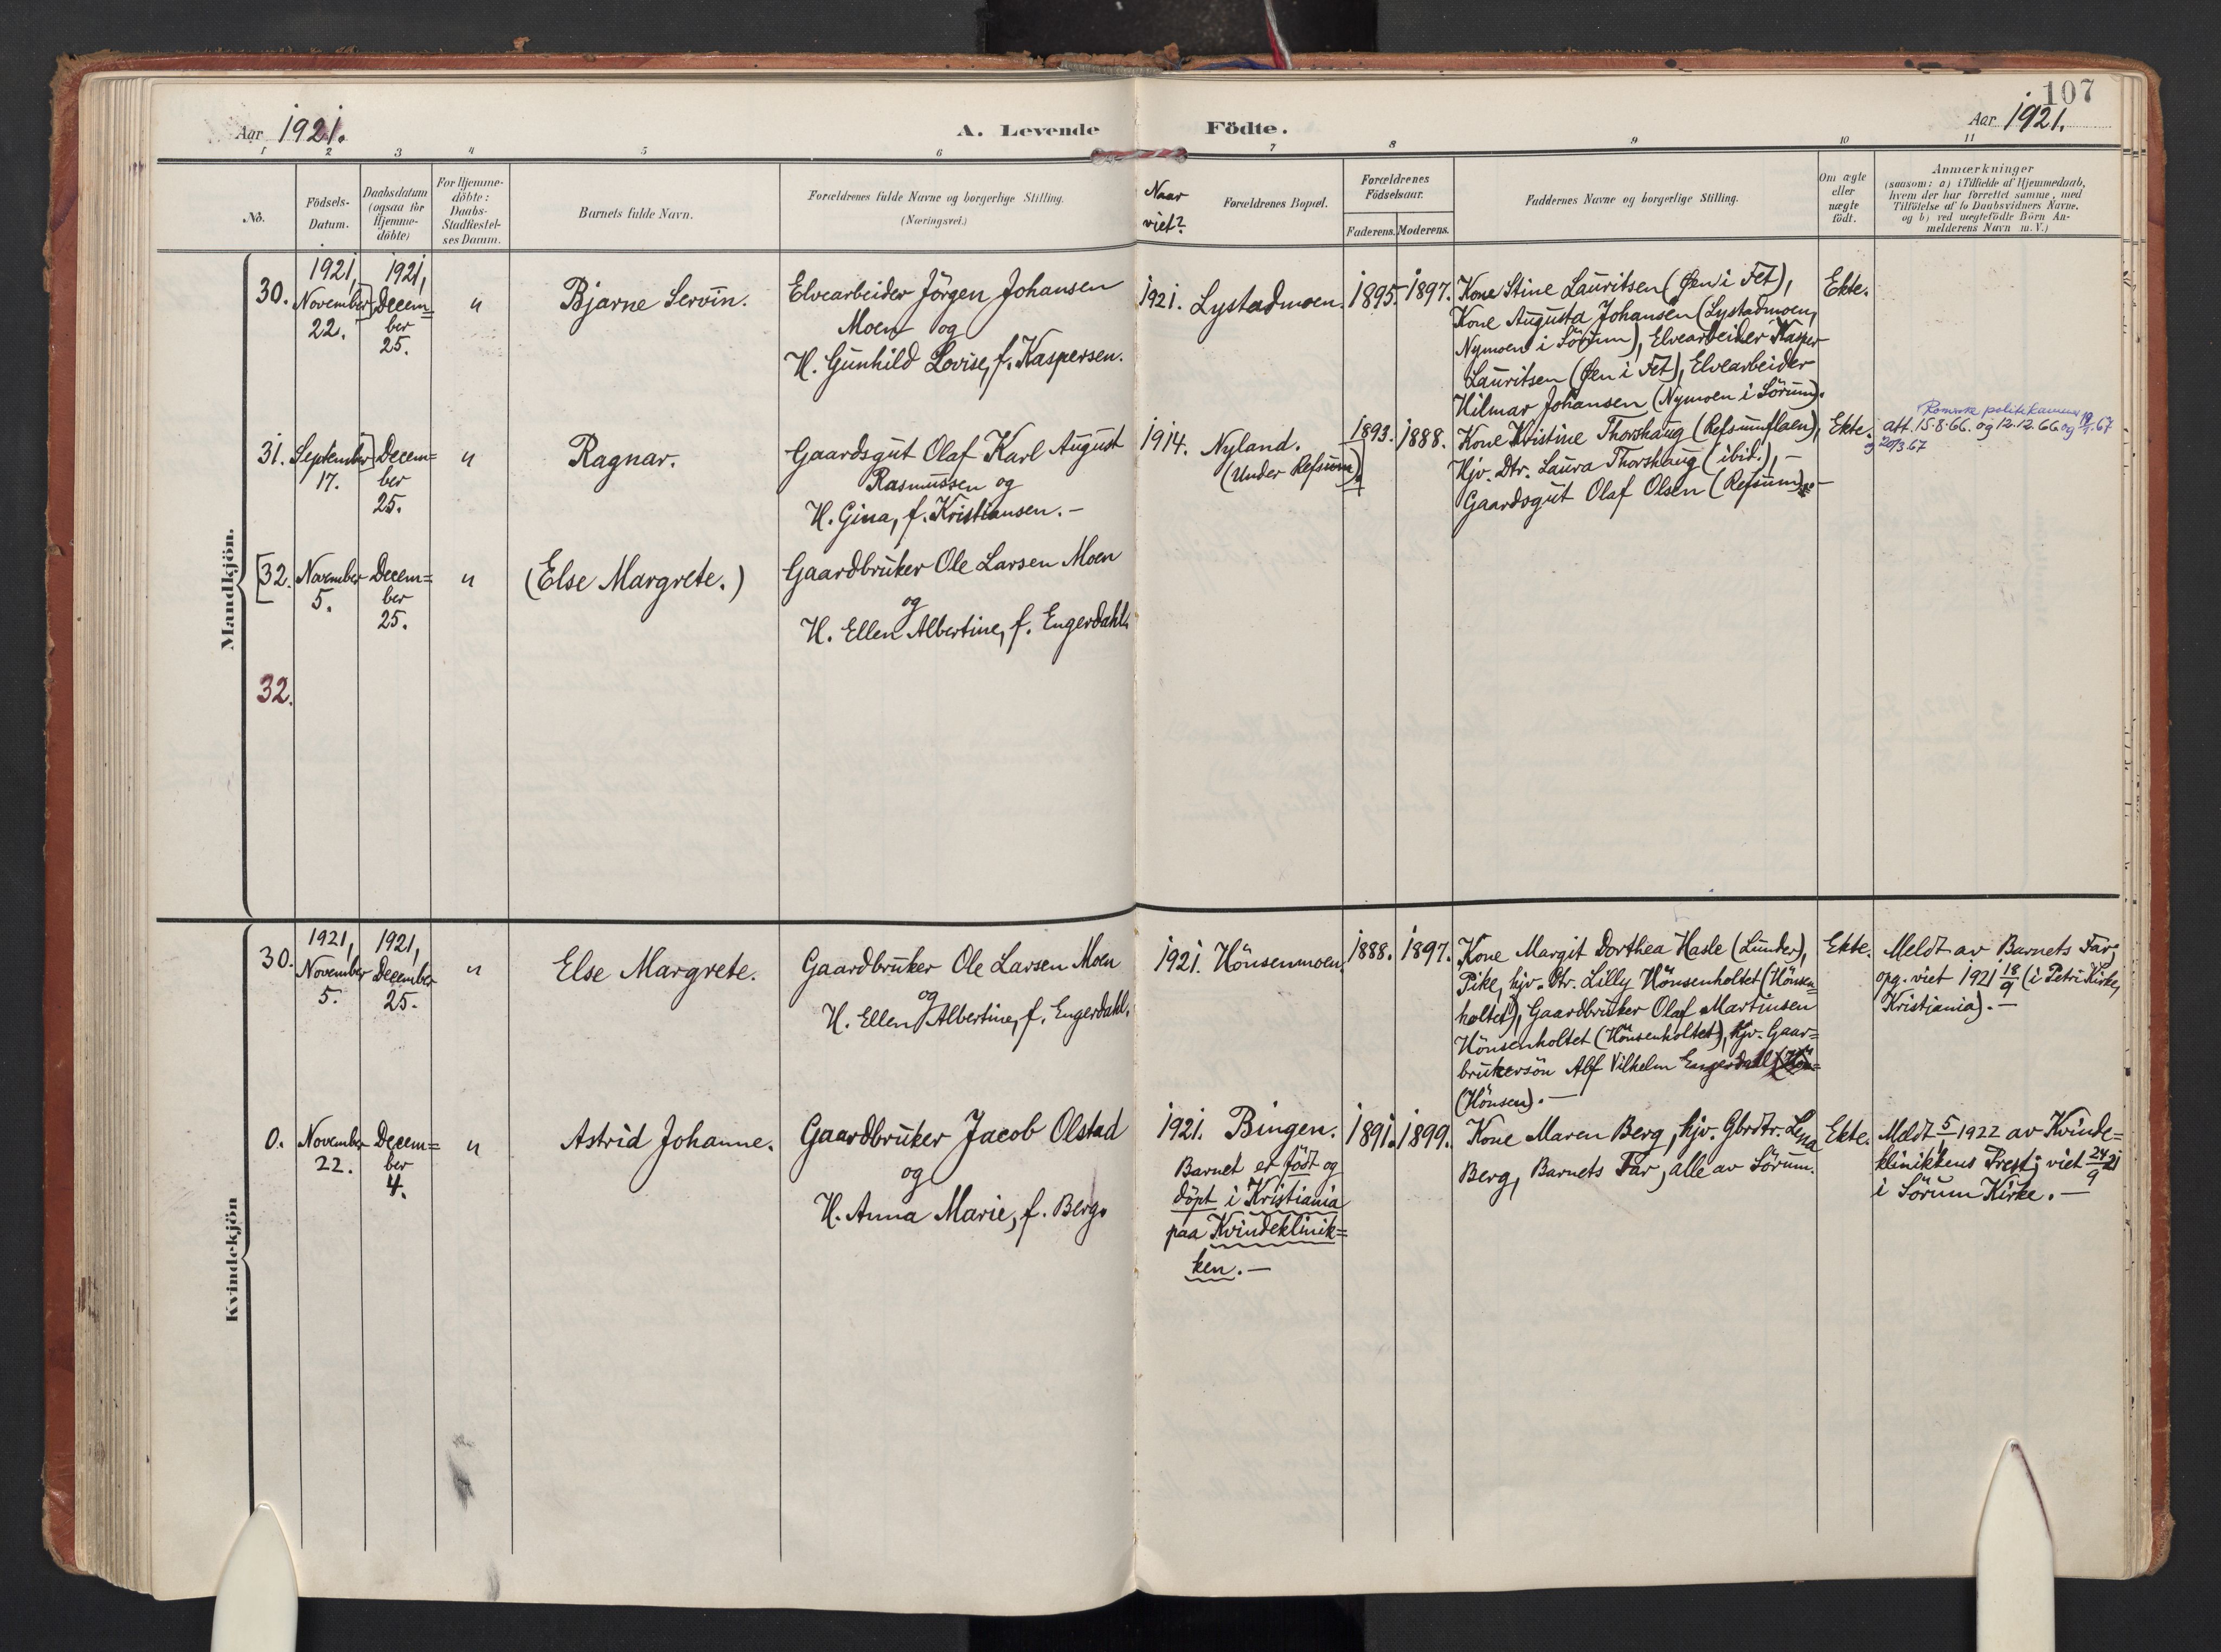 107
Aar 1921.
A. Levende Födte.
Aar 1921.
1 2 3 4 5 6 7 8 9 10 11
No.
Födsels-
Datum.
Daabsdatum
(ogsaa for
Hjemme-
döbte)
For Hjemme-
döbte:
Daabs-
Stadfæstel-
ses Datum.
Barnets fulde Navn.
Forældrenes fulde Navne og borgerlige Stilling.
(Næringsvei.)
Naar
viet?
Forældrenes Bopæl.
Forældrenes
Födselsaar.
Faderens. Moderens.
Faddernes Navne og borgerlige Stilling.
Om ægte
eller
uægte
födt.
Anmærkninger
(saasom: a) i Tilfælde af Hjemmedaab,
hvem der har forrettet samme, med
Tilföielse af to Daabsvidners Navne,
og b) ved uægtefödte Börn An-
melderens Navn m. V.)
Mandkjön.
30.
1921,
November
22.
1921,
Decem=
ber
25.
"
Bjarne Servin.
Elvearbeider Jörgen Johansen
Moen og
H. Gunhild Lovise, f. Kaspersen.
1921.
Lystadmoen.
1895.
1897.
Kone Stine Lauritsen (Øen i Fet),
Kone Augusta Johansen (Lystadmoen,
Nymoen i Sörum), Elvearbeider Kasper
Lauritsen (Øen i Fet), Elvearbeider
Hilmar Johansen (Nymoen i Sörum).
Ekte.
31.
September
17.
Decem=
ber
25.
"
Ragnar.
Gaardsgut Olaf Karl August
Rasmussen og
H. Gina, f. Kristiansen. -
1914.
Nyland.
(Under Refsum).
1893.
1888.
Kone Kristine Thorshaug (Refsumflaen),
Hjv. Dtr. Laura Thorshaug (ibid.), -
Gaardsgut Olaf Olsen (Refsum). -
Ekte.
Romerike politikammer
att. 15.8.66. og 12.12.66 og
og 20/3.67
[32.
November
5.
Decem=
ber
25.
"
(Else Margrete.)
Gaardbruker Ole Larsen Moen
og
H. Ellen Albertine, f. Engerdahl.
32.
Kvindekjön
30.
1921,
November
5.
1921,
December
25.
"
Else Margrete.
Gaardbruker Ole Larsen Moen
og
H. Ellen Albertine, f. Engerdahl.
1921.
Hönsenmoen.
1888.
1897.
Kone Margit Dorthea Hasle (Lunder),
Pike, hjv. Dtr. Lilly Hönsenholtet (Hönsen=
holtet), Gaardbruker Olaf Martinsen
Hönsenholtet (Hönsenholtet), hjv. Gaar=
brukersön Alf Vilhelm Engerdahl (Hön=
(Hönsen). -
Ekte.
Meldt av Barnets Far;
opg. viet 1921 18/9 (i Petri Kirke,
Kristiania). -
0.
November
22.
Decem=
ber
4.
"
Astrid Johanne.
Gaardbruker Jacob Olstad
og
H. Anna Marie, f. Berg.
1921.
Bingen.
Barnet er födt og
döpt i Kristiania
paa Kvindeklinik=
ken. -
1891.
1899.
Kone Maren Berg, hjv. Gbrdtr. Lena
Berg, Barnets Far, alle av Sörum.
Ekte.
Meldt 5/1 1922 av Kvinde=
klinikkens Prest; viet 24/9 21
i Sörum Kirke. -